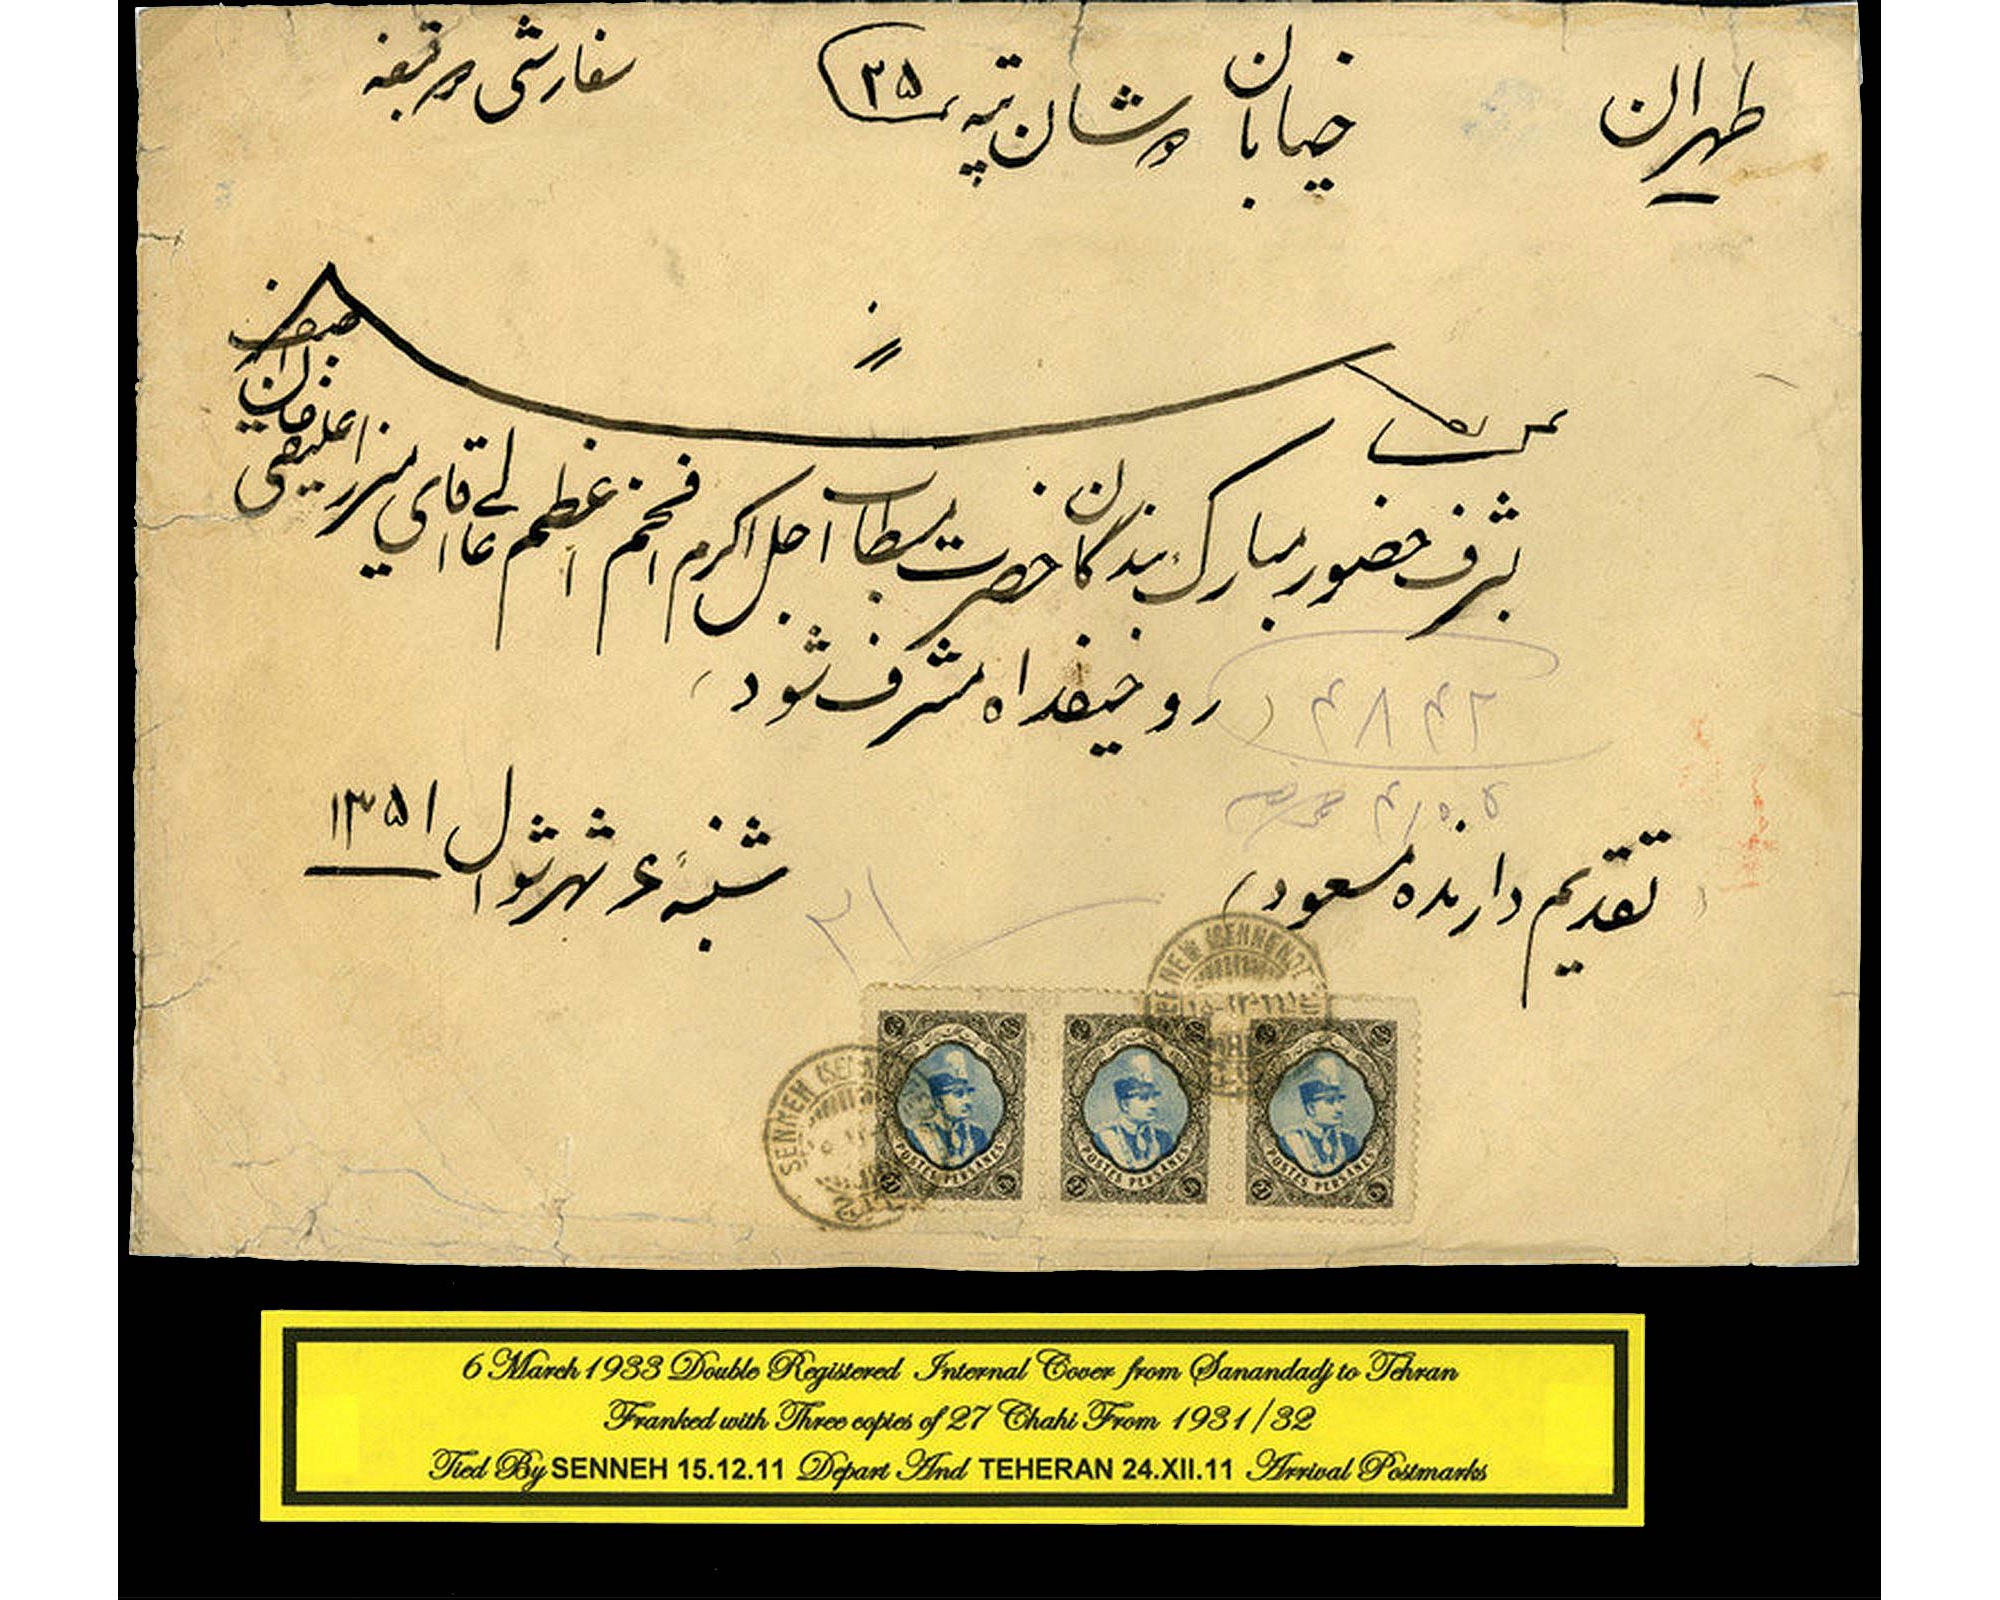 طهران
خیابان دوشان تپه نمره ۲۵
سفارشی دو قبضه
بشرف حضور مبارک بندگان حضرت مستطاب اجل اکرم افخم اعظم عالی آقای میرزا علینقی خان آصف
روحیفداه مشرف شود
تقدیم دارنده مسعود
شنبه ۶ شهر شوال ۱۳۵۱
۲۱
SENNEH
POSTES PERSANES
POSTES PERSANES
POSTES PERSANES
6 March 1933 Double Registered Internal Cover from Sanandadj to Tehran
Franked with Three copies of 27 Chahi From 1931/32
Tied By SENNEH 15.12.11 Depart And TEHERAN 24.XII.11 Arrival Postmarks